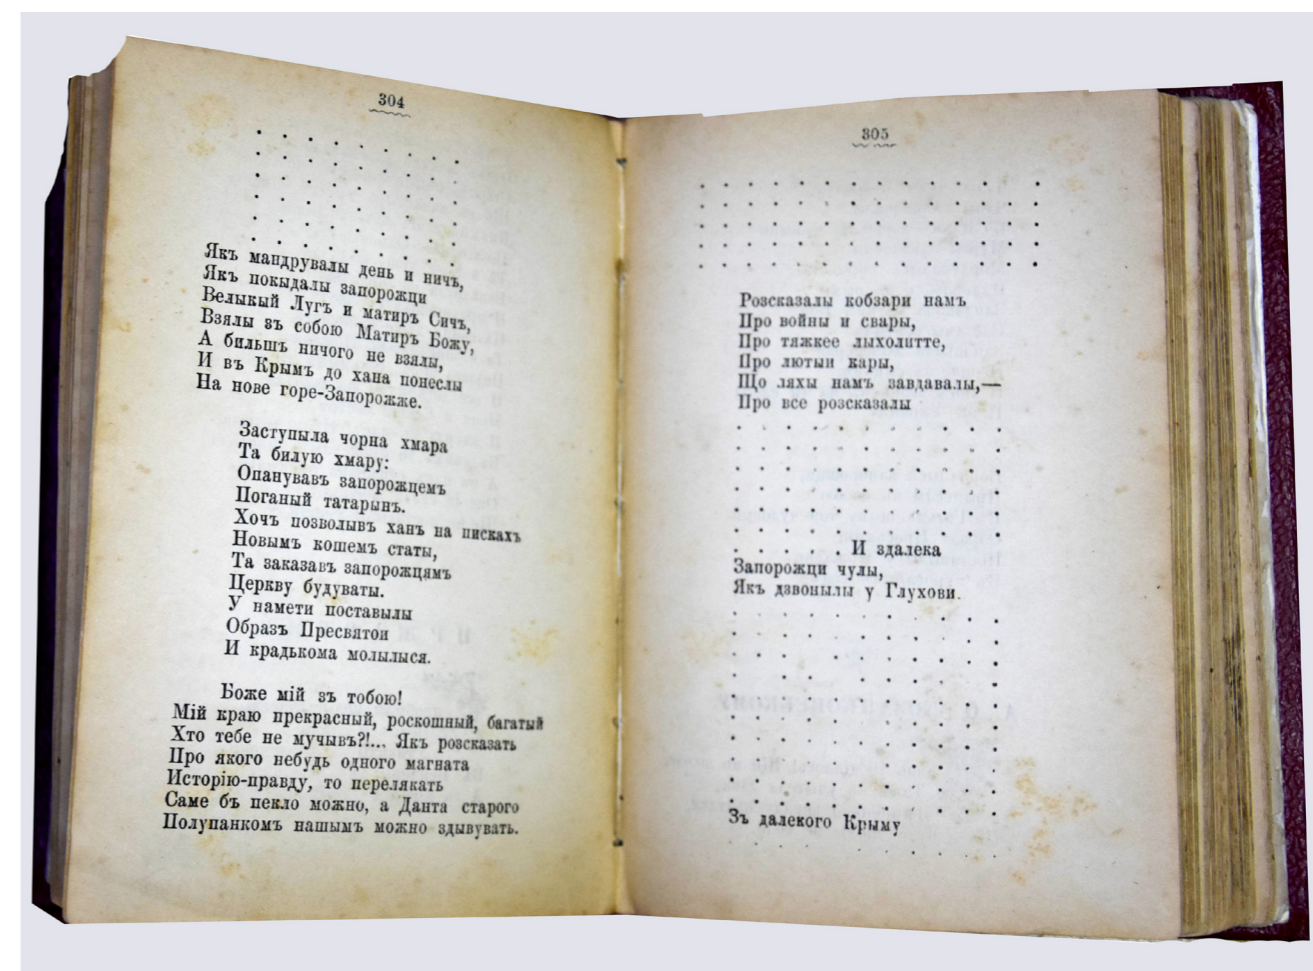 304
. . . . . . . . .
. . . . . . . . .
. . . . . . . . .
. . . . . . . . .
. . . . . . . . .
. . . . . . . . .
Якъ мандрувалы день и ничъ,
Якъ покыдалы запорожци
Велыкый Лугъ и матиръ Сичъ,
Взялы зъ собою Матиръ Божу,
А бильшъ ничого не взялы,
И въ Крымъ до хана понеслы
На нове горе-Запорожже.
Заступыла чорна хмара
Та билую хмару:
Опанувавъ запорожцемъ
Поганый татарынъ.
Хочъ позволывъ ханъ на пискахъ
Новымъ кошемъ статы,
Та заказавъ запорожцямъ
Церкву будуваты.
У намети поставылы
Образъ Пресвятои
И крадькома молылыся.
Боже мій зъ тобою!
Мій краю прекрасный, роскошный, багатый
Хто тебе не мучывъ?!... Якъ розсказать
Про якого небудь одного магната
Исторію-правду, то перелякать
Саме бъ пекло можно, а Данта старого
Полупанкомъ нашымъ можно здывувать.
305
. . . . . . . . . . . . . .
. . . . . . . . . . . . . .
. . . . . . . . . . . . . .
. . . . . . . . . . . . . .
. . . . . . . . . . . . . .
Розсказалы кобзари намъ
Про войны и свары,
Про тяжкее лыхолитте,
Про лютыи кары,
Що ляхы намъ завдавалы,—
Про все розсказалы
. . . . . . . . . . .
. . . . . . . . . . .
. . . . . . . . . . .
. . . . . . . . . . .
. . . . . . . . . . .
. . . . . . . . . . .
. . . . . И здалека
Запорожци чулы,
Якъ дзвонылы у Глухови.
. . . . . . . . . . .
. . . . . . . . . . .
. . . . . . . . . . .
. . . . . . . . . . .
. . . . . . . . . . .
. . . . . . . . . . .
. . . . . . . . . . .
. . . . . . . . . . .
. . . . . . . . . . .
. . . . . . . . . . .
Зъ далекого Крыму
. . . . . . . . . . .